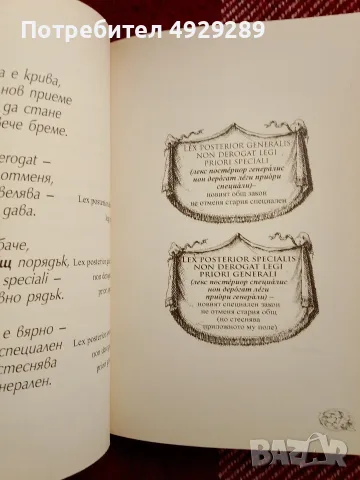 Потребител 4929289
а е крива,
нов приеме
да стане
вече бреме.
derogat –
отменя,
велява –
дава.
баче,
щ порядък,
speciali –
вно рядък.
е вярно –
специален
стеснява
нерален.
Lex posterior
non derogat
Lex posterior
non derogat
Lex posterior
non derogat
LEX POSTERIOR GENERALIS
NON DEROGAT LEGI
PRIORI SPECIALI
(лекс постѐриор генера̀лис
нон дѐрогат лѐги прио̀ри
специа̀ли)–
новият общ закон
не отменя стария специален
LEX POSTERIOR SPECIALIS
NON DEROGAT LEGI
PRIORI GENERALI
(лекс постѐриор специа̀лис
нон дѐрогат лѐги
прио̀ри генера̀ли) –
новият специален закон
не отменя стария общ
(но стеснява
приложното му поле)
BAZAR